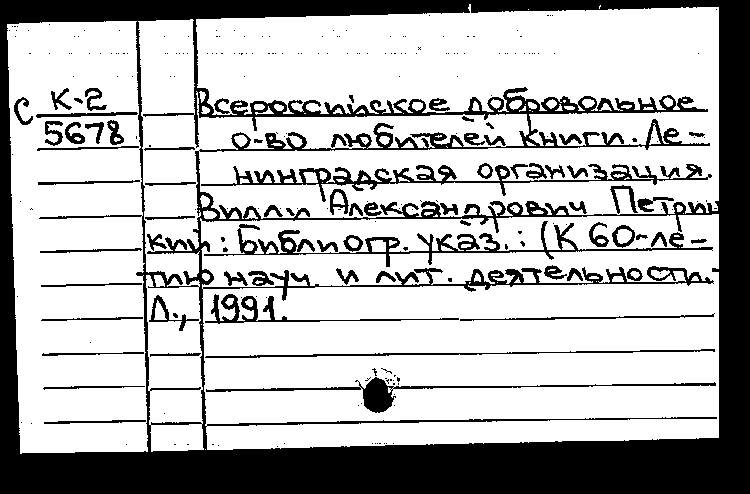 С К-2
5678
Всероссийское добровольное
о-во любителей книги. Ле-
нинградская организация.
Вилли Александрович Петриц
кий: Библиогр. указ.: (К 60-ле-
тию науч. и лит. деятельности.-
Л., 1991.